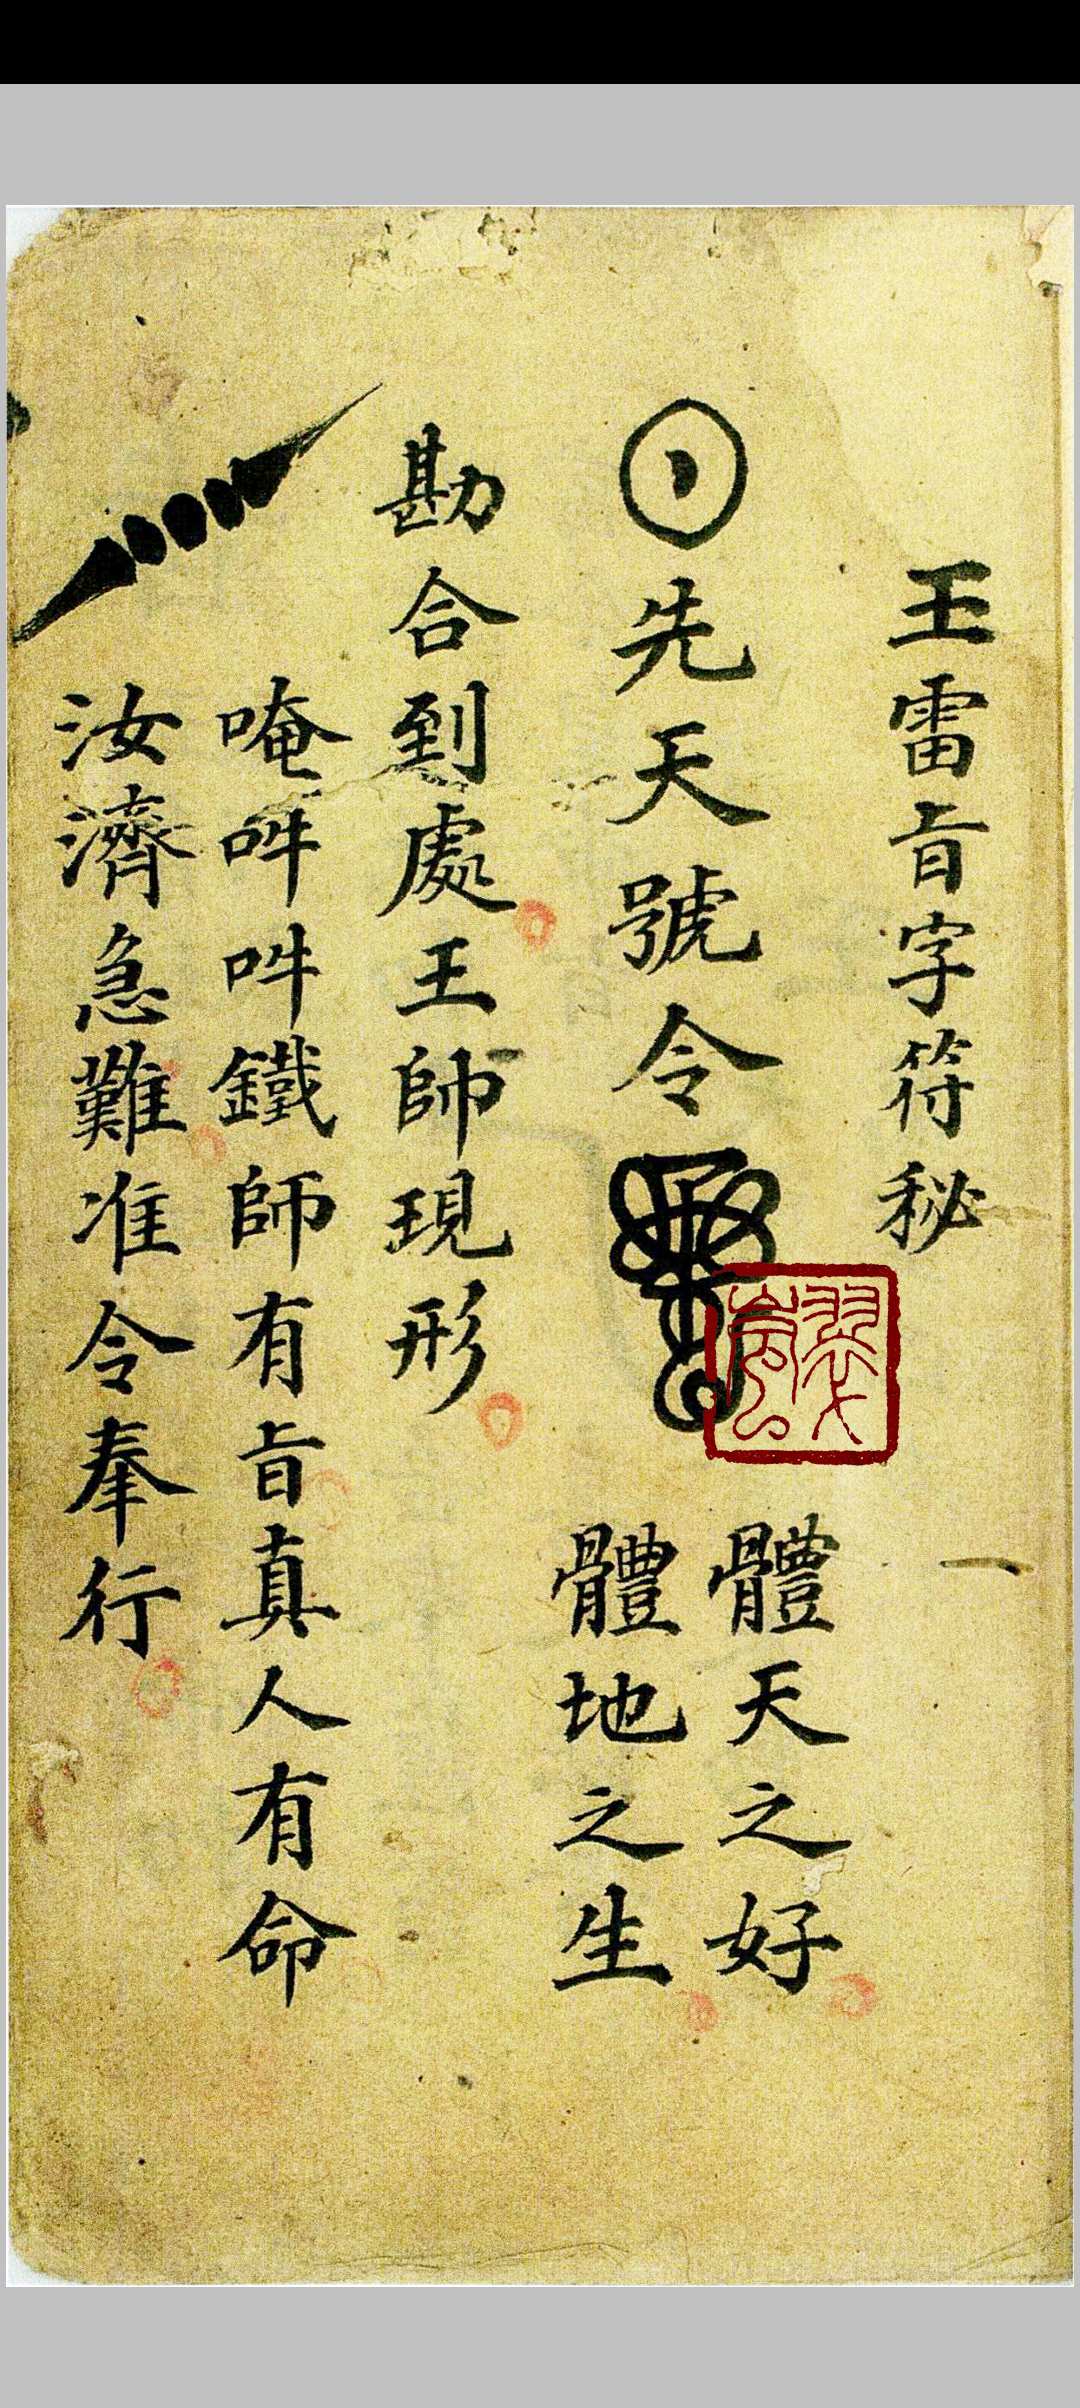 王雷㫖字符秘
先天號令
體天之好
體地之生
勘合到處王師現形
唵吽吽鐵師有㫖真人有命
汝濟急難准令奉行